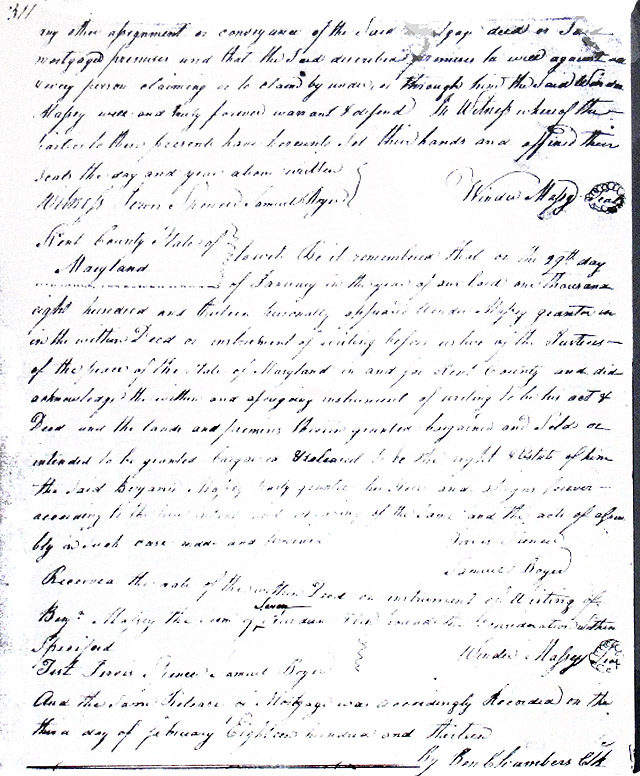 311
any other assignment or conveyance of the Said gage deed or Said
mortgaged premises and that the Said described premises he will against
every person claiming or to claim by under or through him the Said Winder
Massy will and truly forever warrant & defend In Witness whereof the
parties to these presents have hereunto Set their hands and affixed their
Seals the day and year above written
Witness Spencer Samuel Boyer
Winder Massy Seal
Kent County State of
Maryland
towit Be it remembered that on the 29th day
of January in the year of our Lord one thousand
eight hundred and thirteen personally appeared Winder Massy grantor in
in the within Deed or instrument of writing before us two of the Justices
of the peace of the State of Maryland in and for Kent County and did
acknowledge the within and aforegoing instrument of writing to be his act &
Deed and the lands and premises therein granted bargained and Sold or
intended to be granted bargained & released to be the right & Estate of him
the Said Benjamin Massy party grantee his Heirs and assigns forever
according to the true intent and meaning of the Same and the acts of assem
bly in Such case made and provided
Spencer
Samuel Boyer
Received the date of the within Deed or instrument of Writing of
Benjn Massy the Sum of Seven hundred the Consideration within
Specified
Winder Massey Seal
Test Spencer Samuel Boyer
And the Same Release of Mortgage was accordingly Recorded on the
third day of february Eighteen hundred and thirteen
By Ben Chambers Clk